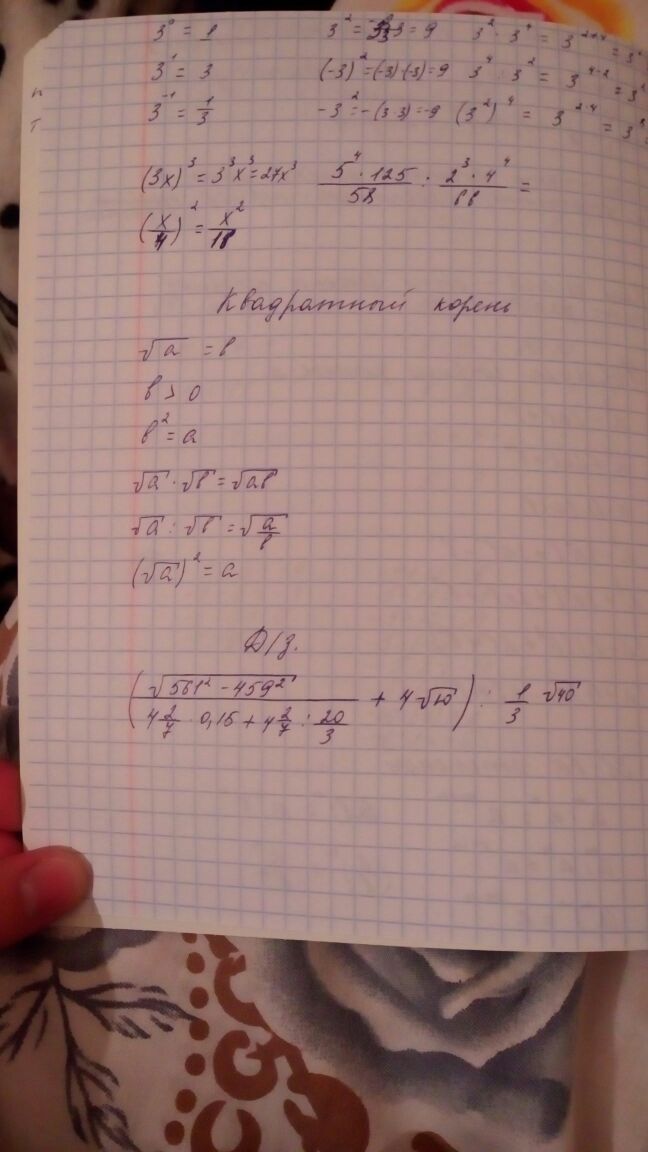 3⁰ = 1
3² = 3·3 = 9
3² · 3⁴ = 3²⁺⁴ = 3
3¹ = 3
(-3)² = (-3)·(-3) = 9
3⁴ : 3² = 3⁴⁻² = 3
3⁻¹ = 1/3
-3² = -(3·3) = -9
(3²)⁴ = 3²·⁴ = 3⁸ =
(3x)³ = 3³x³ = 27x³
(x/4)² = x²/16
Квадратный корень
√a = b
b > 0
b² = a
√a · √b = √ab
√a : √b = √(a/b)
(√a)² = a
Д/з.
(√(561² - 459²) / (4 2/7 · 0,15 + 4 2/7 : 20/3) + 4√10) : 1/3 √40